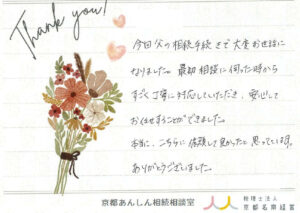 Thank you!
今回父の相続手続きで大変お世話に
なりました。最初相談に伺った時から
すごく丁寧に対応していただき、安心して
おまかせすることができました。
本当に、こちらに依頼して良かったと思っています。
ありがとうございました。
京都あんしん相続相談室
税理士法人
京都名南経営